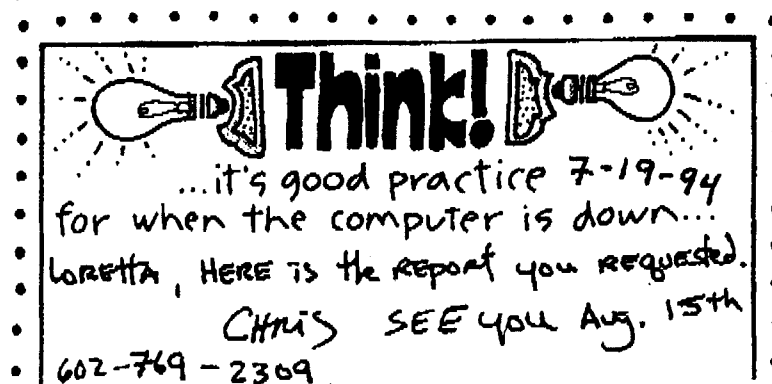 Think!
...it's good practice 7-19-94
for when the computer is down...
LORETTA, HERE is the REPORT you REQUESTED.
CHRIS SEE you Aug. 15th
602-769-2309